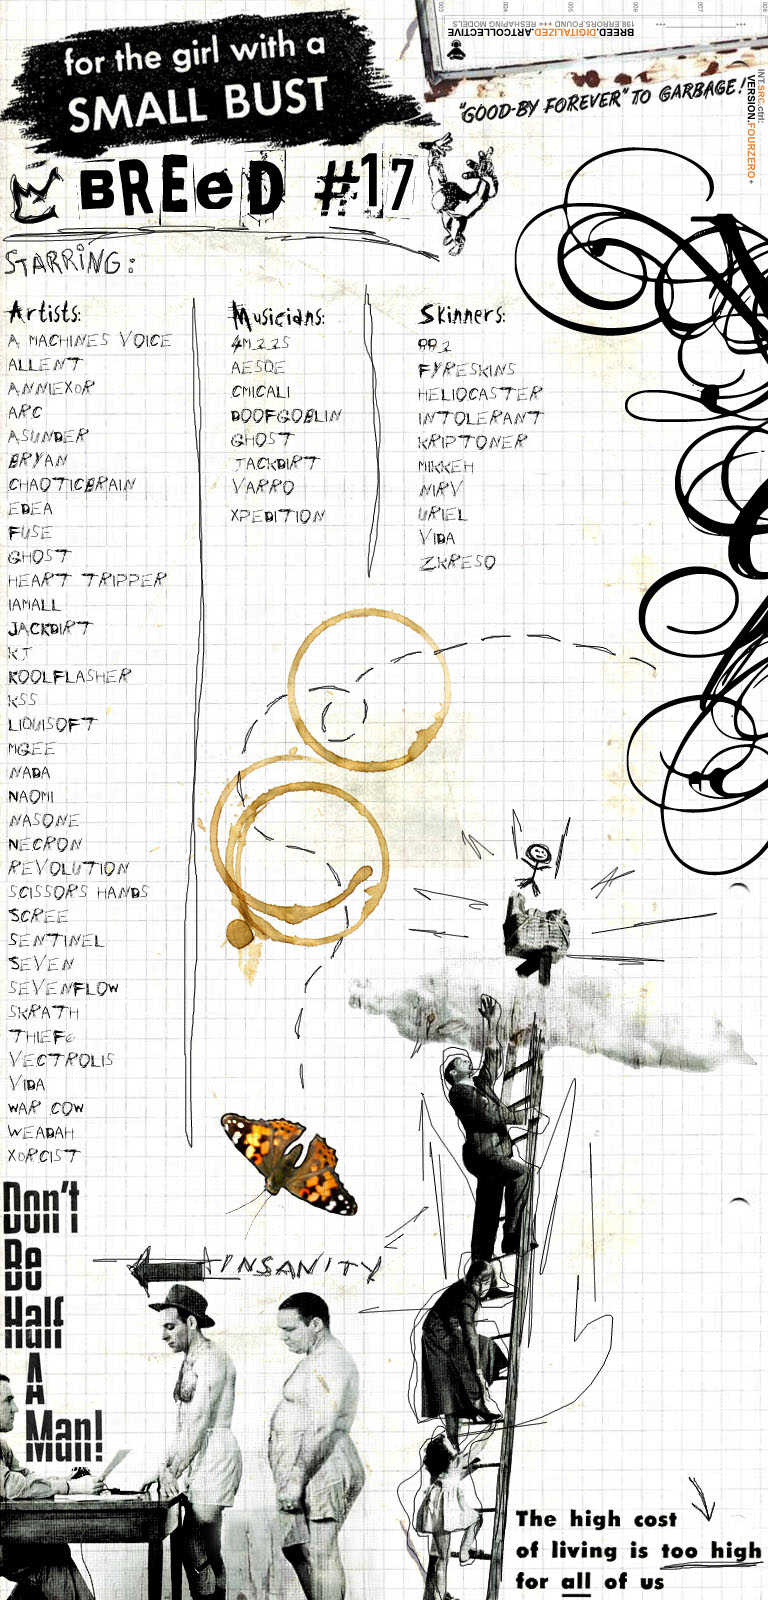 for the girl with a
SMALL BUST
BREED.DIGITALIZED.ARTCOLLECTIVE
198.ERRORS.FOUND +++ RESHAPING MODELS
"GOOD-BY FOREVER" TO GARBAGE!
INT.SRC.ctrl:
VERSION.FOURZERO+
BREeD #17
STARRING:
Artists:
A MACHINES VOICE
ALLENT
ANNIEXOR
ARC
ASUNDER
BRYAN
CHAOTICBRAIN
EDEA
FUSE
GHOST
HEART TRIPPER
IAMALL
JACKDIRT
KJ
KOOLFLASHER
KSS
LIQUISOFT
MGEE
NADA
NAOMI
NASONE
NECRON
REVOLUTION
SCISSORS HANDS
SCREE
SENTINEL
SEVEN
SEVENFLOW
SKRATH
THIEF6
VECTROLIS
VIDA
WAR COW
WEADAH
XORCIST
Musicians:
4M225
AESOE
CMICALI
DOOFGOBLIN
GHOST
JACKDIRT
VARRO
XPEDITION
Skinners:
FYRESKINS
HELIOCASTER
INTOLERANT
KRIPTONER
MIKKEH
NIRV
URIEL
VIDA
ZKRESO
Don't
Be
Half
A
Man!
INSANITY
The high cost
of living is too high
for all of us